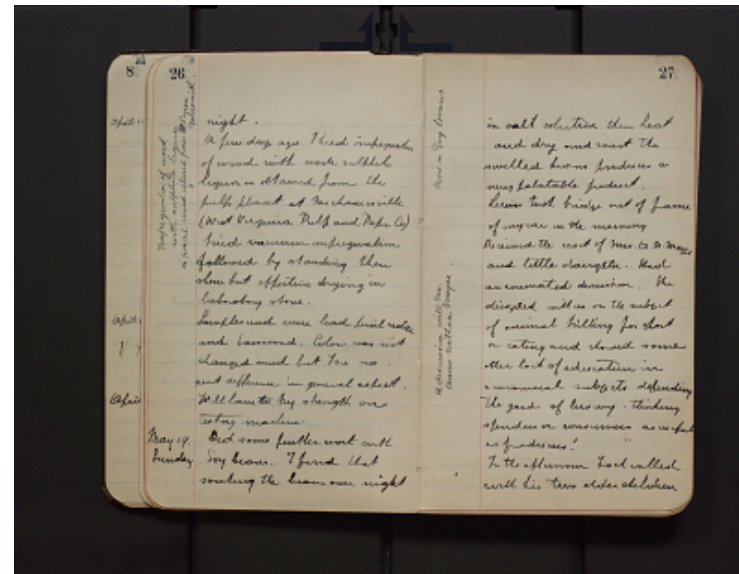 8
26
April
April
April
night.
A few days ago I tried impregnation
of wood with waste sulphite
liquor as obtained from the
pulp plant at Mechanicsville
(West Virginia Pulp and Paper Co)
Tried vacuum impregnation
followed by standing then
slow but effective drying in
laboratory stove.
Samples used were lead pencil cedar
and basswood. Color was not
changed much but I see no
great difference in general aspect.
Will have to try strength on
testing machine.
May 19. Did some further work with
Sunday Soy beans. I find that
soaking the beans over night
Impregnation of wood
with sulphite liquor
27
in salt solution then heat
and dry and roast the
swelled beans produces a
very palatable product.
took bridge out of frame
of my car in the
Received the visit of Mrs.
and little daughter. Had
an animated discussion. She
disagreed with us on the subject
of animal killing for sport
or eating and showed some
other lack of education in
economical subjects defending
the good of luxury. Thinking
spenders or consumers as
as producers!
In the afternoon called
with his two older children
Work on Soy Beans
A discussion with Mrs.